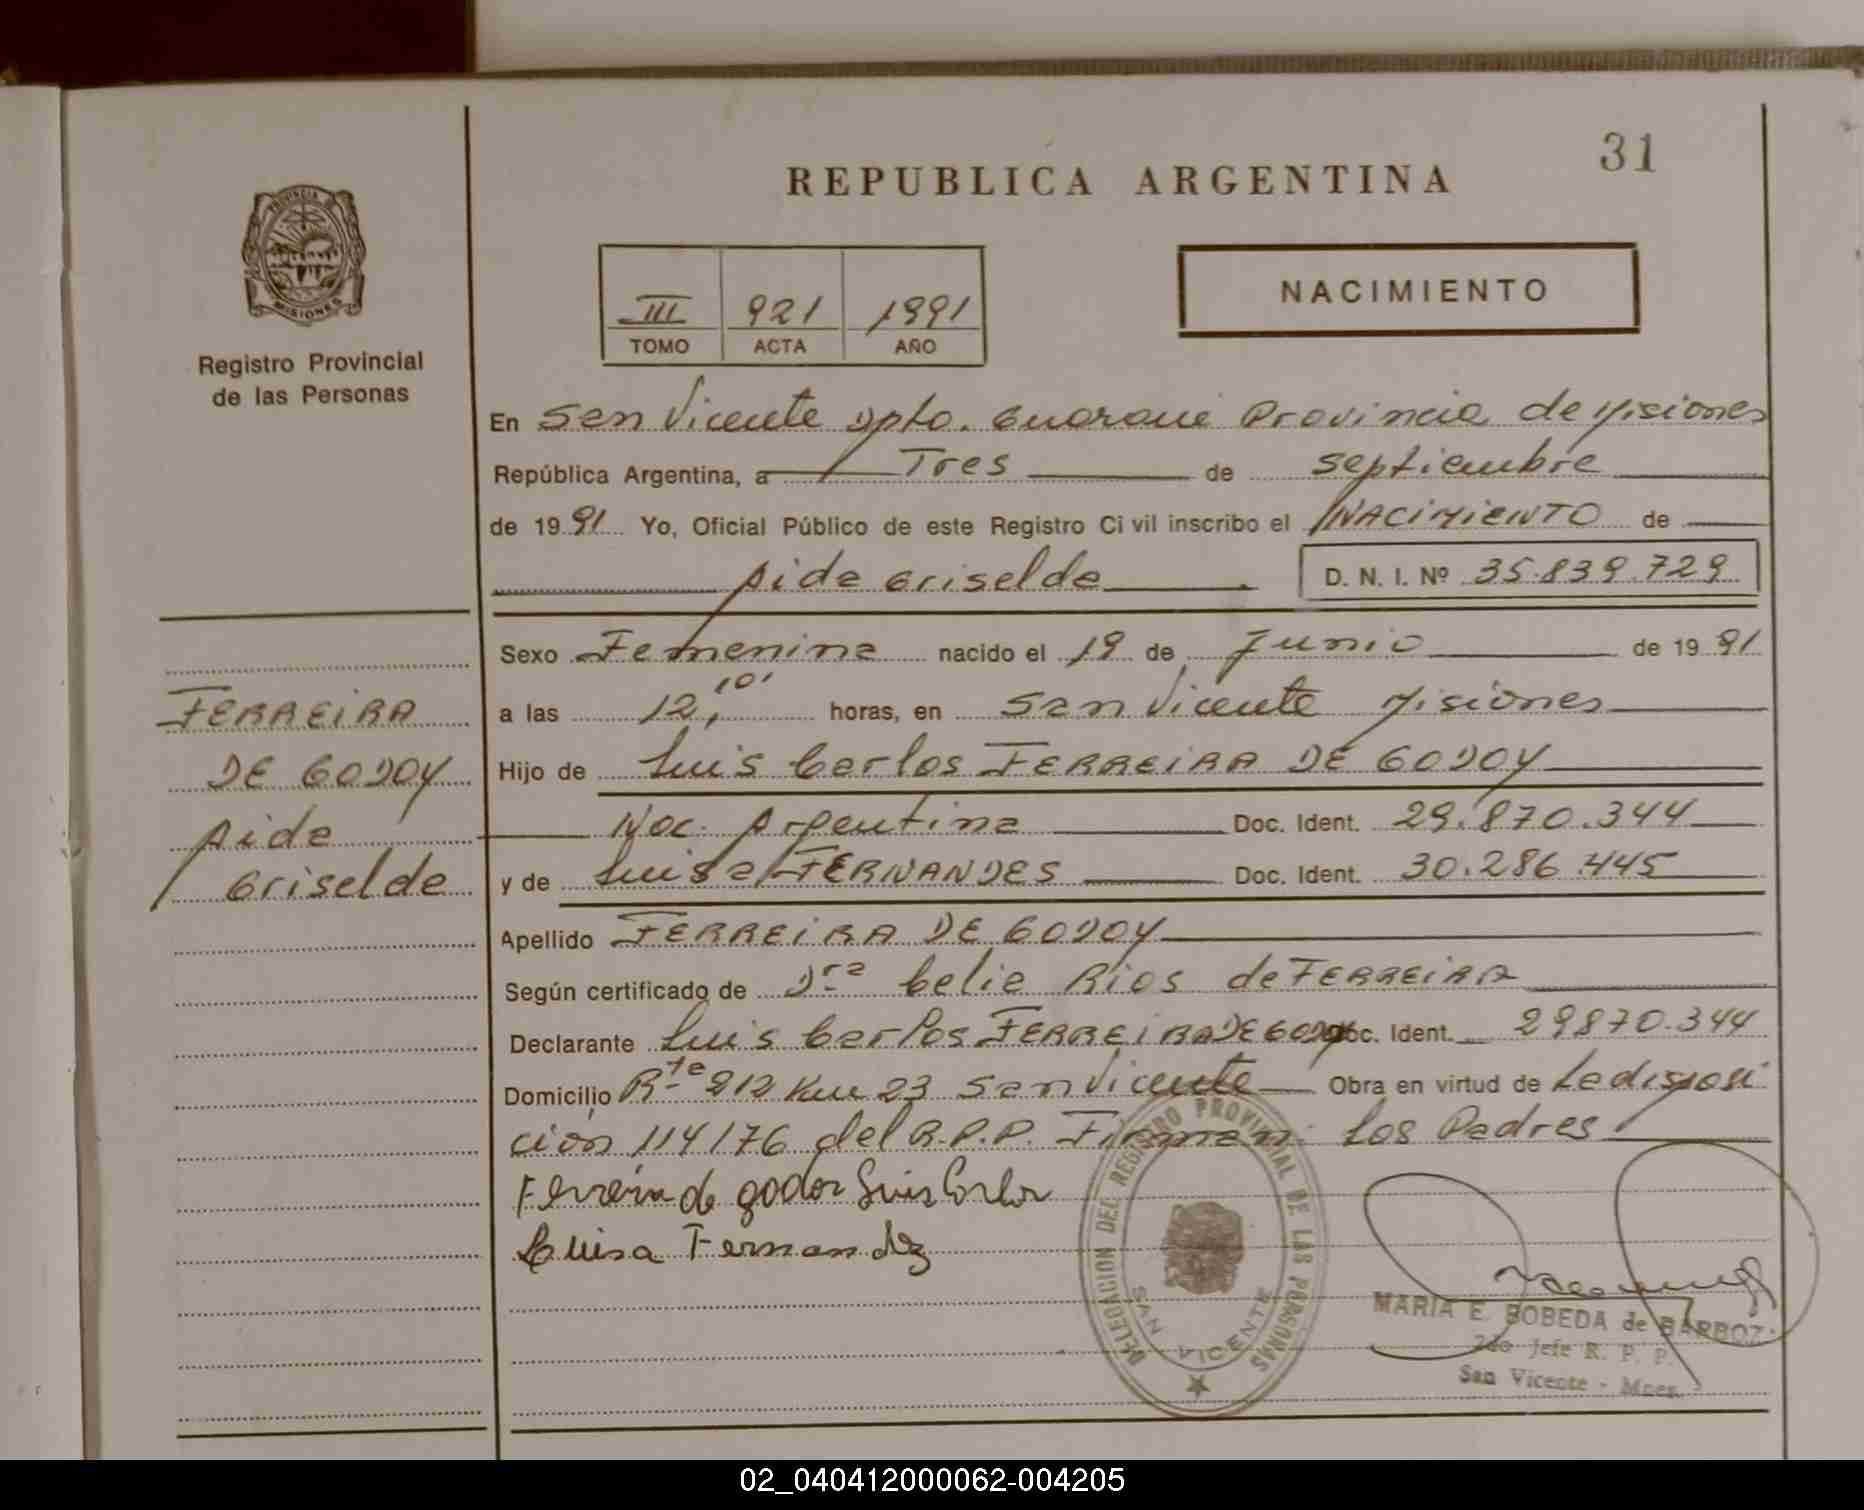 31
REPUBLICA ARGENTINA
PROVINCIA D MISIONES
Registro Provincial
de las Personas
III 921 1991
TOMO ACTA AÑO
NACIMIENTO
En San Vicente Dpto. Guaraní Provincia de Misiones
República Argentina, a Tres de septiembre
de 1991 Yo, Oficial Público de este Registro Civil inscribo el NACIMIENTO de
Aida Griselda D. N. I. Nº 35.839.729
Sexo Femenina nacido el 19 de Junio de 1991
a las 12,10' horas, en San Vicente Misiones
Hijo de Luis Carlos FERREIRA DE GODOY
Nac. Argentina Doc. Ident. 29.870.344
y de Luisa FERNANDES Doc. Ident. 30.286.445
Apellido FERREIRA DE GODOY
Según certificado de Dra Celia Rios de FERREIRA
Declarante Luis Carlos FERREIRA DE GODOY Doc. Ident. 29870.344
Domicilio Rte 212 Km 23 San Vicente Obra en virtud de La disposi
ción 114/76 del R.P.P. Firman: Los Padres
Ferreira de godoy Luis Carlos
Luisa Fernandez
FERREIRA
DE GODOY
Aida
Griselda
DELEGACION DEL REGISTRO PROVINCIAL DE LAS PERSONAS
SAN VICENTE
MARIA E. BOBEDA de BARBOZ
2do Jefe R. P. P.
San Vicente - Mnes.
02_040412000062-004205